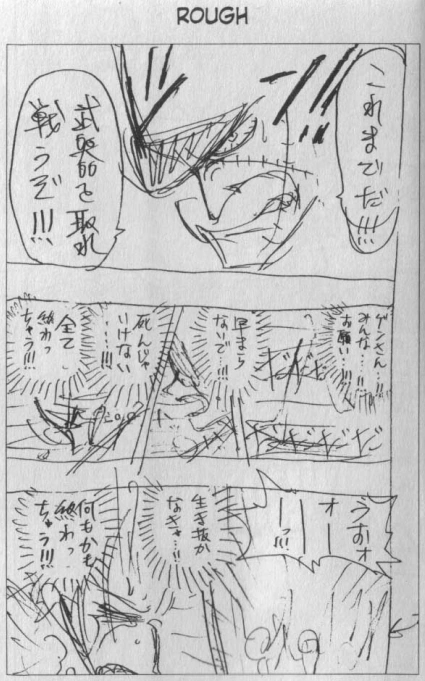 ROUGH
これまでだ!!!
武器を取れ
戦うぞ!!!
ゲンさん…!!
みんな…!!
お願い…!!
早まら
ないで…!!
死んじゃ
いけない
…!!!
全て
終わっ
ちゃう!!!
ダダダダ
うおォ
オーー
ーーッ!!
生き抜か
なきゃ…!!
何もかも
終わっ
ちゃう!!!